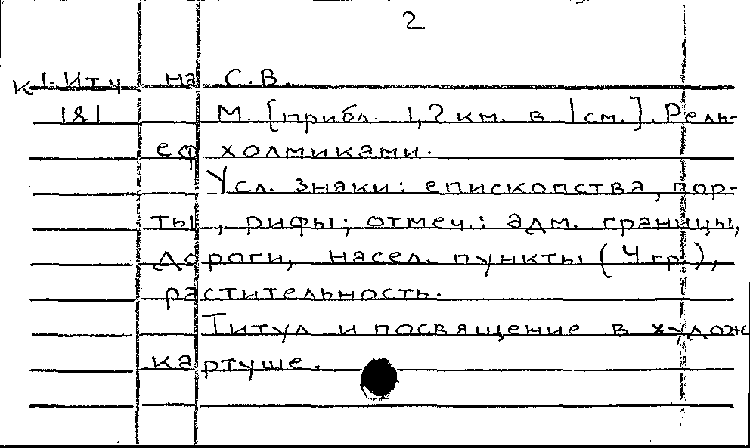 2
К 1. Ит.ч на С.В.
181 М [прибл. 1,2 км. в 1 см.]. Рель-
еф холмиками.
Усл. знаки: епископства, пор-
ты, рифы; отмеч.: адм. границы,
дороги, насел. пункты (4 гр.),
растительность.
Титул и посвящение в худож
картуше.